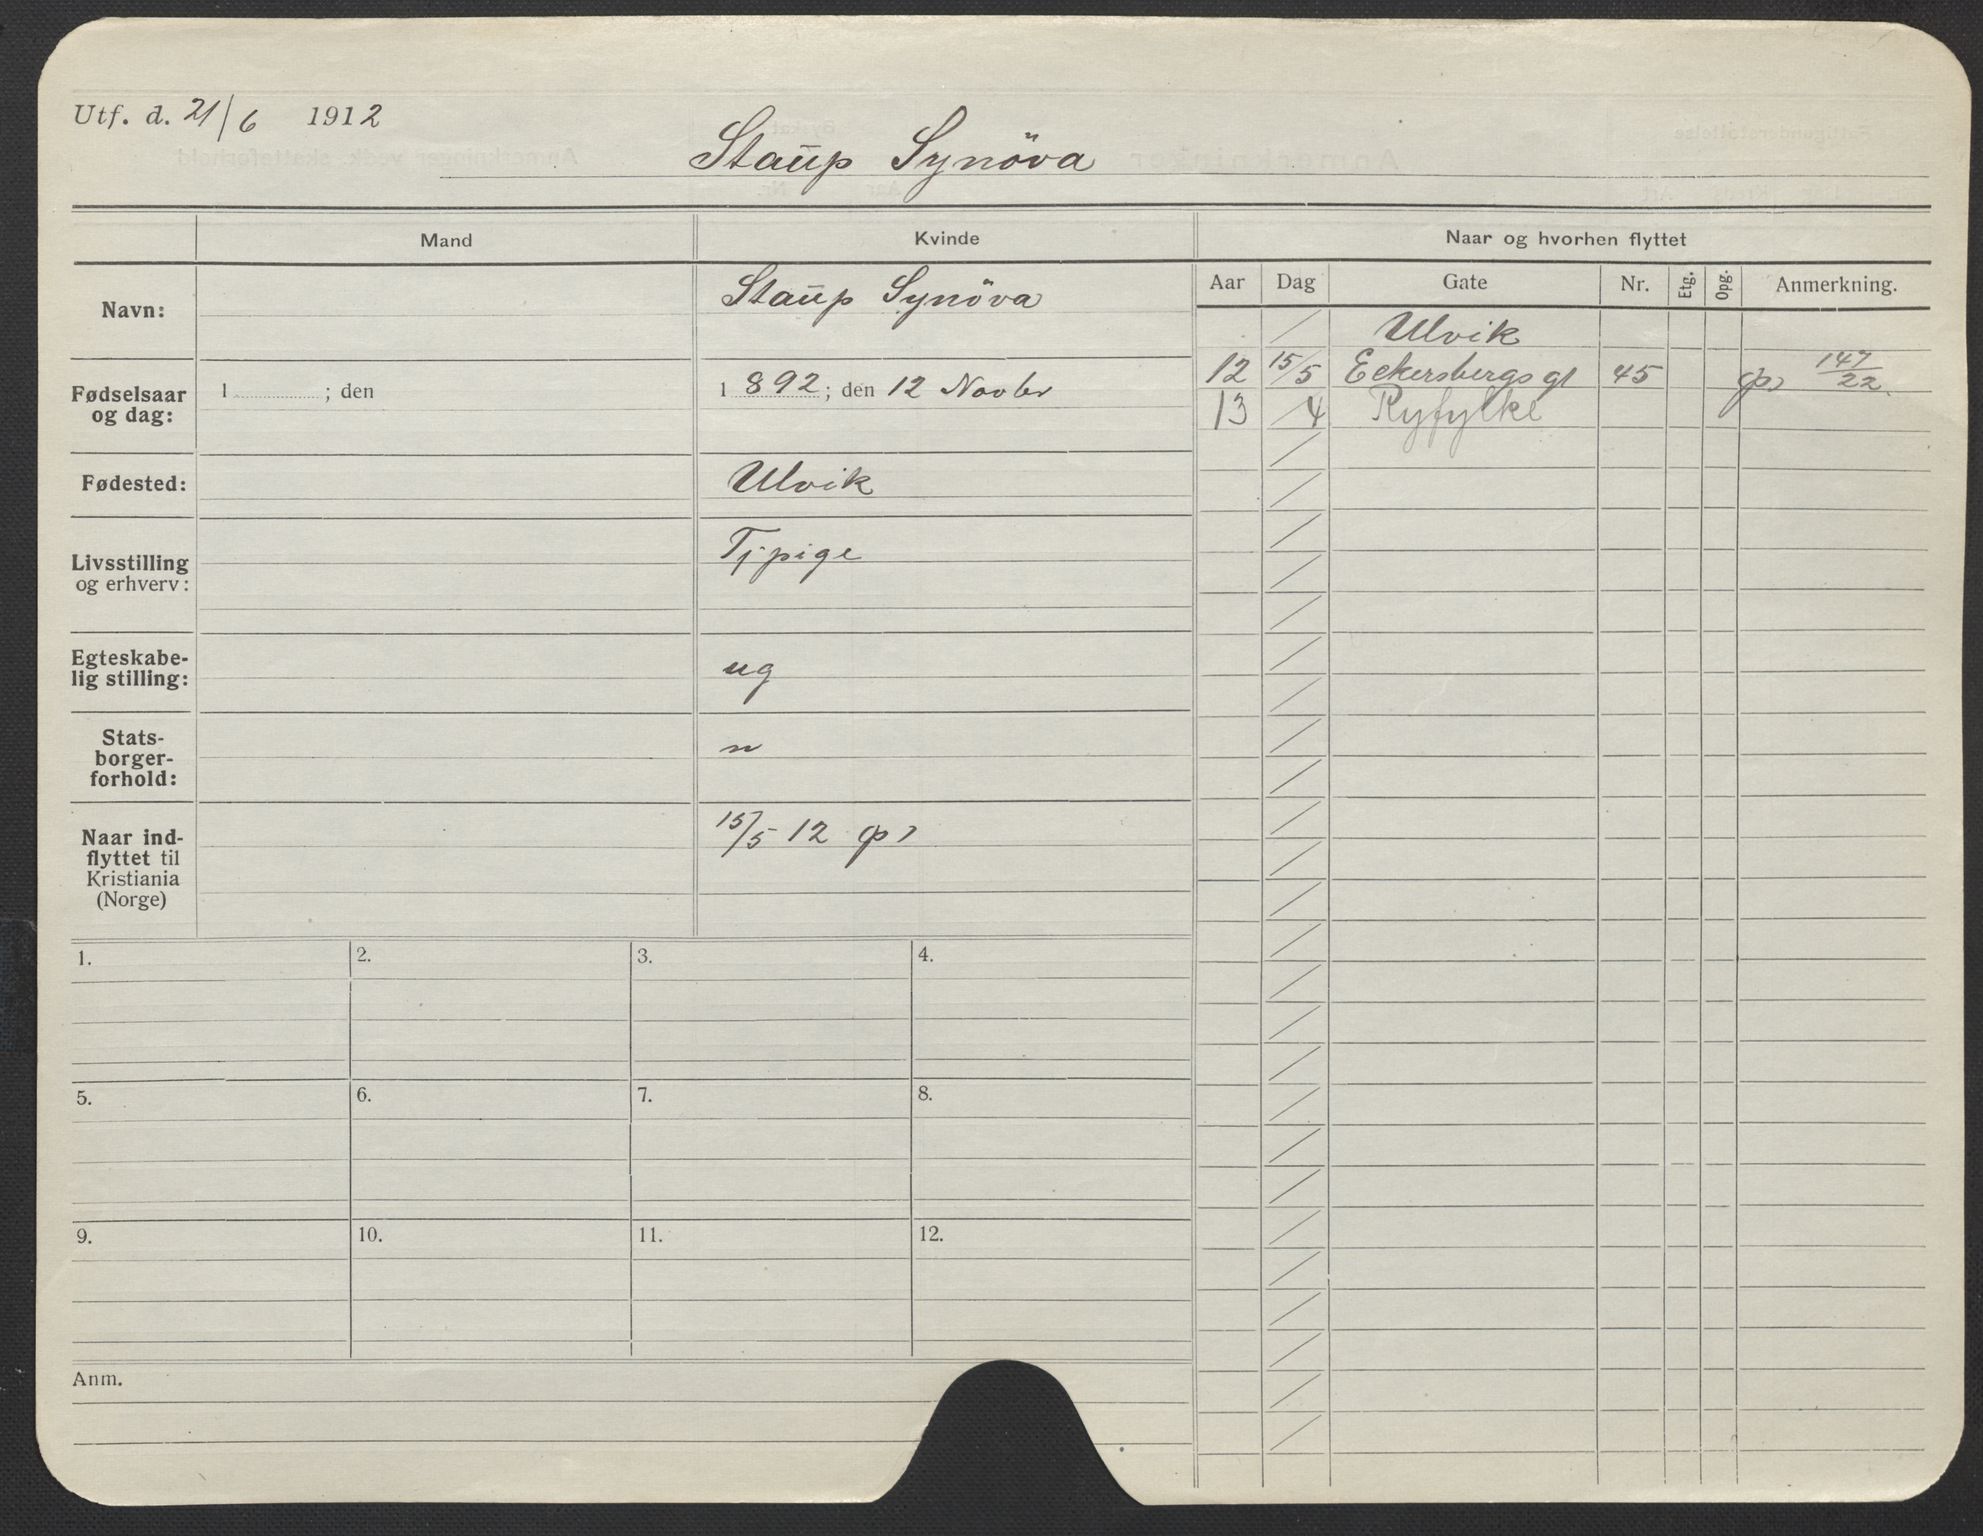 Utf. d. 21/6 1912
Staup Synöva
Mand
Kvinde
Naar og hvorhen flyttet
Aar Dag Gate Nr. Etg. Opg. Anmerkning.
Navn: Staup Synöva
Fødselsaar og dag: 1 ; den
1892; den 12 Novbr
Fødested: Ulvik
Livsstilling og erhverv: Tj.pige
Egteskabe-
lig stilling: ug
Stats-
borger-
forhold: n
Naar ind-
flyttet til
Kristiania
(Norge)
15/5 12
Ulvik
12 15/5 Eckersbergs gt 45 147/22
13 /4 Ryfylke
1. 2. 3. 4.
5. 6. 7. 8.
9. 10. 11. 12.
Anm.